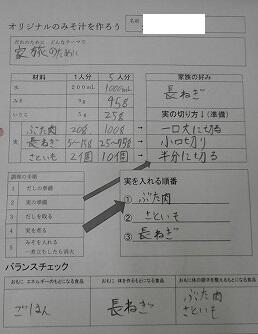 オリジナルのみそ汁を作ろう
名前
だれのために どんなテーマで
家族のために
材料 1人分 5人分
水 200mL 1000mL
みそ 9g 95g
いりこ 5g 25g
実 ぶた肉 20g 100g → 一口大に切る
長ねぎ 5~15g 25~95g → 小口切り
さといも 2個 10個 → 半分に切る
家族の好み
長ねぎ
実の切り方↓(準備)
調理の手順
1 だしの準備
2 実の準備
3 だしを取る
4 実を煮る
5 みそを入れる
一煮立ちしたら消火
実を入れる順番
① ぶた肉
② さといも
③ 長ねぎ
バランスチェック
おもに エネルギーのもとになる食品
おもに 体を作るもとになる食品
おもに体の調子を整えるもとになる食品
ごはん
長ねぎ
ぶた肉
さといも